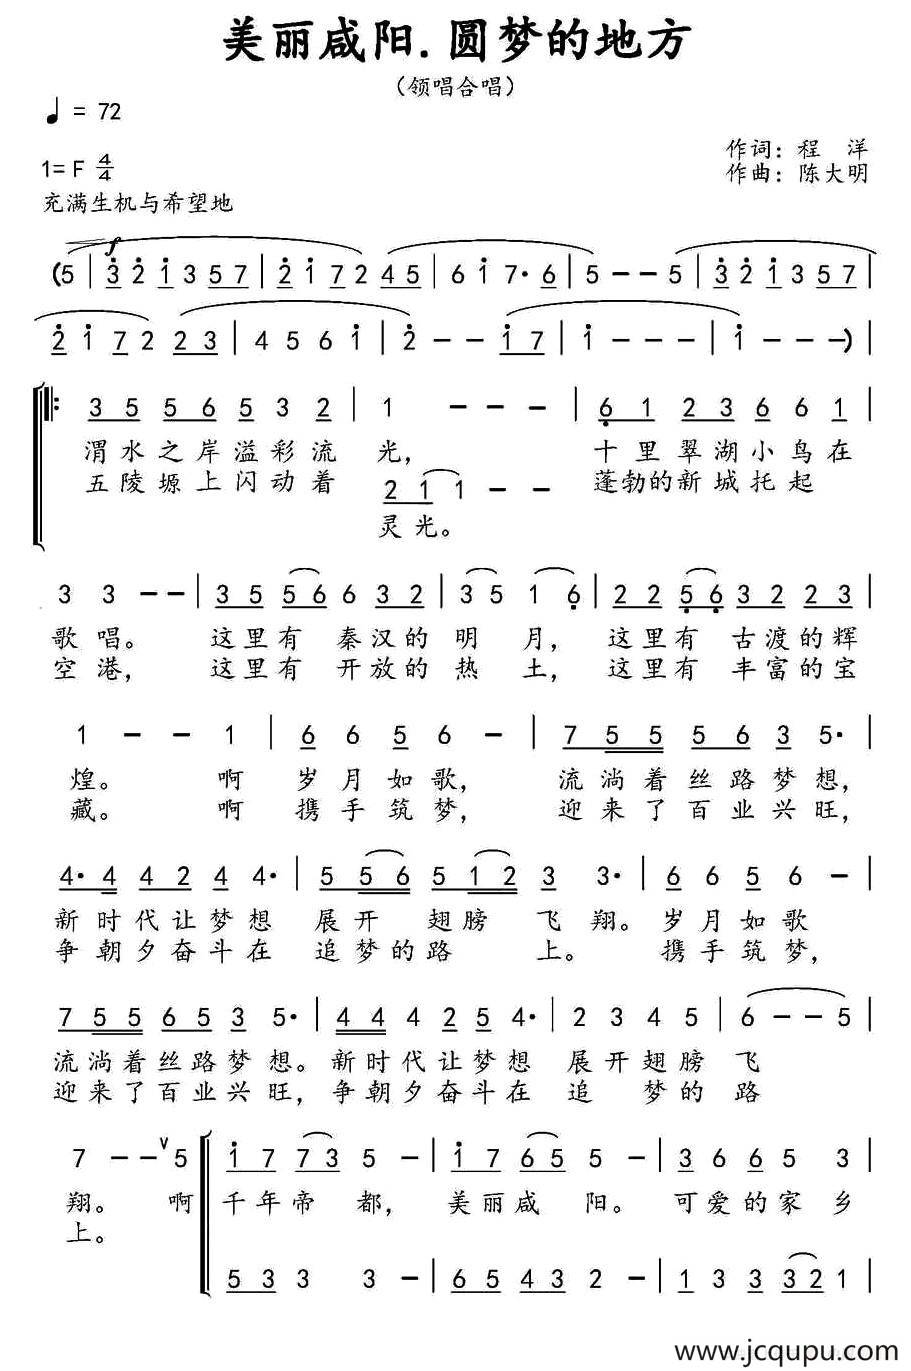 美丽咸阳.圆梦的地方
（领唱合唱）
♩= 72
1= F 4/4
作词：程 洋
作曲：陈大明
充满生机与希望地
f
(5 | 3 2 1 3 5 7 | 2 1 7 2 4 5 | 6 1 7· 6 | 5 - - 5 | 3 2 1 3 5 7 |
2 1 7 2 2 3 | 4 5 6 1 | 2 - - 1 7 | 1 - - - | 1 - - -) |
3 5 5 6 5 3 2 | 1 - - - | 6 1 2 3 6 6 1 |
渭水之岸溢彩流 光， 十里翠湖小鸟在
五陵塬上闪动着 2 1 1 - - 蓬勃的新城托起
灵光。
3 3 - - | 3 5 5 6 6 3 2 | 3 5 1 6 | 2 2 5 6 3 2 2 3 |
歌唱。 这里有 秦汉的 明 月， 这里有 古渡的辉
空港， 这里有 开放的 热 土， 这里有 丰富的宝
1 - - 1 | 6 6 5 6 - | 7 5 5 5 6 3 5· |
煌。 啊 岁月如歌， 流淌着丝路梦想，
藏。 啊 携手筑梦， 迎来了百业兴旺，
4· 4 4 2 4 4· | 5 5 6 5 1 2 3 3· | 6 6 5 6 - |
新时代让梦想 展开 翅膀 飞 翔。 岁月如歌
争朝夕奋斗在 追梦的路 上。 携手筑梦，
7 5 5 6 5 3 5· | 4 4 4 2 5 4· | 2 3 4 5 | 6 - - 5 |
流淌着丝路梦想。 新时代让梦想 展开翅膀 飞
迎来了百业兴旺， 争朝夕奋斗在 追 梦的 路
7 - - ∨ 5 | 1 7 7 3 5 - | 1 7 6 5 5 - | 3 6 6 5 3 |
翔。 啊 千年帝 都， 美丽咸 阳。 可爱的家乡
上。
5 3 3 3 - | 6 5 4 3 2 - | 1 3 3 3 2 1 |
www.jcqupu.com